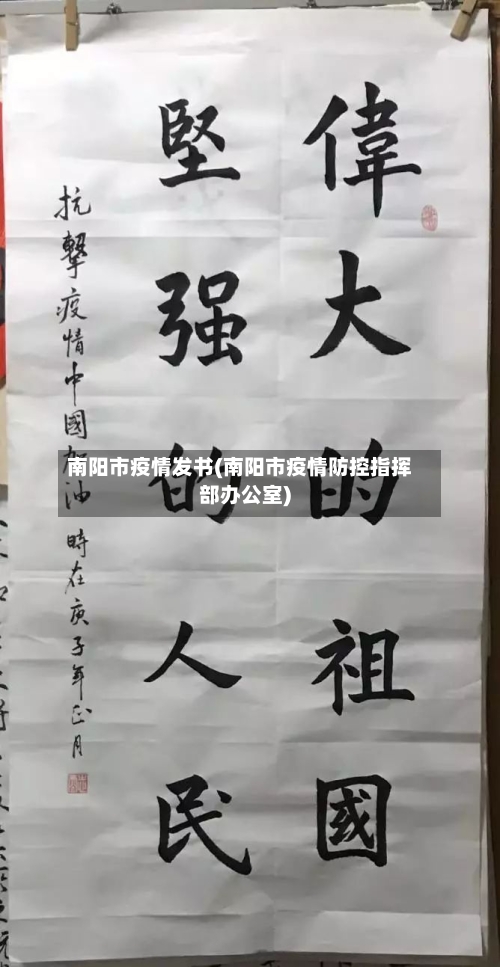 偉大的祖國
堅强的人民
抗擊疫情中國加油 時在庚子年正月
南阳市疫情发书(南阳市疫情防控指挥
部办公室)